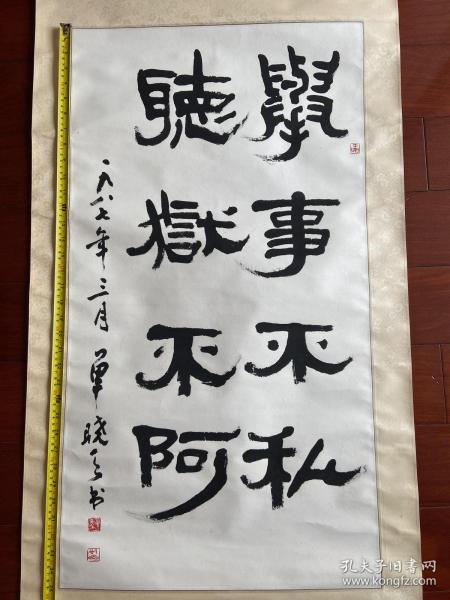 舉事不私
聽獄不阿
一九八七年三月 單曉天书
孔夫子旧书网
www.kongfz.com